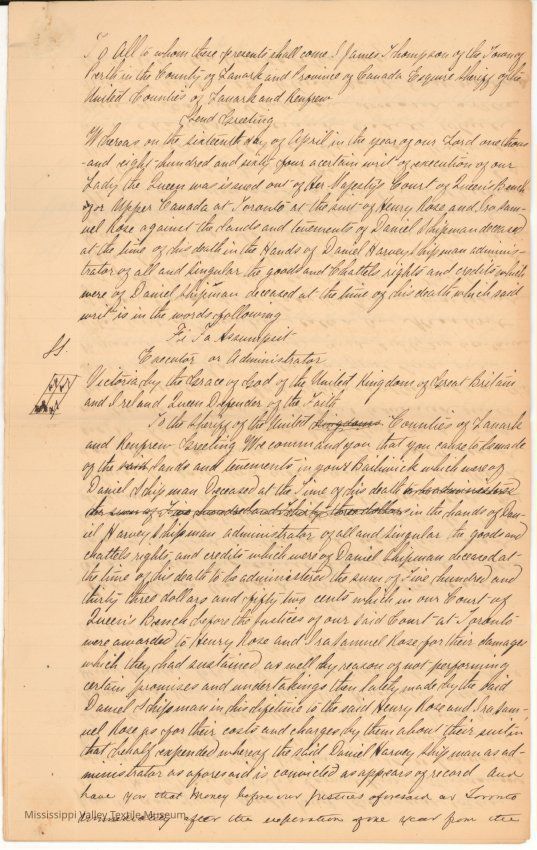 To All to whom these presents shall come I James Thompson of the Town of
Perth in the County of Lanark and Province of Canada Esquire Sheriff of the
United Counties of Lanark and Renfrew
Send Greeting
Whereas on the sixteenth day of April in the year of our Lord one thous-
-and eight hundred and sixty four a certain writ of execution of our
Lady the Queen was issued out of Her Majesty's Court of Queen's Bench
for Upper Canada at Toronto at the suit of Henry Rose and Ira Sam-
uel Rose against the Lands and tenements of Daniel Shipman deceased
at the time of his death in the Hands of Daniel Harvey Shipman adminis-
trator of all and singular the goods and Chattels rights and credits which
were of Daniel Shipman deceased at the time of his death which said
writ is in the words following
Fi Fa Assumpsit
Executor or Administrator
Victoria by the Grace of God of the United Kingdom of Great Britain
and Ireland Queen Defender of the Faith
To the Sheriff of the United Kingdoms Counties of Lanark
and Renfrew Greeting We command you that you cause to be made
of the said Lands and tenements in your Bailiwick which were of
Daniel Shipman Deceased at the Time of his death to be administered
the sum of Five hundred and thirty three dollars in the hands of Dan-
iel Harvey Shipman administrator of all and singular the goods and
chattels rights and credits which were of Daniel Shipman deceased at
the time of his death to be administered the sum of Five hundred and
thirty three dollars and fifty two cents which in our Court of
Queen's Bench before the justices of our said Court at Toronto
were awarded to Henry Rose and Ira Samuel Rose for their damages
which they had sustained as well by reason of not performing
certain promises and undertakings then lately made by the said
Daniel Shipman in his lifetime to the said Henry Rose and Ira Sam-
uel Rose as for their costs and charges by them about their suit in
that behalf expended whereof the said Daniel Harvey Shipman as ad-
ministrator as aforesaid is convicted as appears of record and
have you that money before our justices aforesaid at Toronto
immediately after the expiration of one year from the
Mississippi Valley Textile Museum